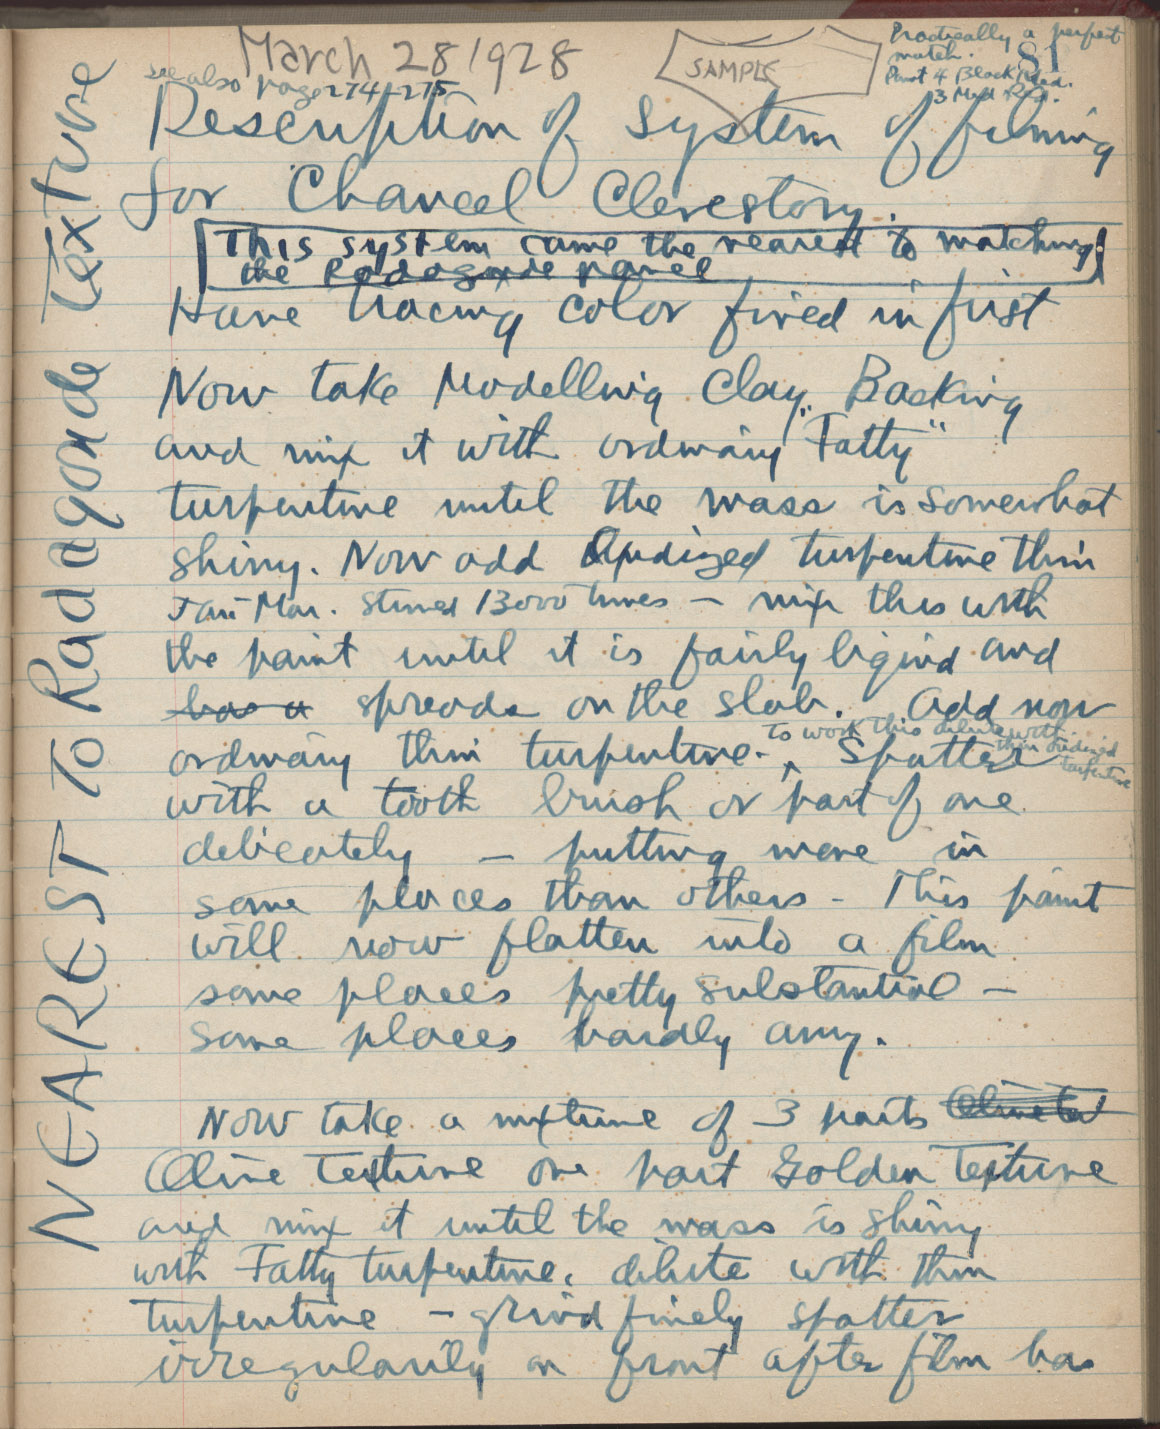 March 28 1928
SAMPLE
Practically a perfect
match.
81
Paint 4 Black
3 Med Red.
see also pages 274-275
Description of System of filming
for Chancel Clerestory.
This system came the nearest to matching
the Radegonde panel
Have tracing color fired in first
Now take Modelling Clay Backing
and mix it with ordinary "Fatty"
turpentine until the mass is somewhat
shiny. Now add Oxidized turpentine thin
Jan Mar. Stirred 13000 times – mix this with
the paint until it is fairly liquid and
has a spreads on the slab. Add now
ordinary thin turpentine. Spatter
to work this dilute with
thin oxidized
turpentine
with a tooth brush or part of one
delicately – putting more in
some places than others – This paint
will now flatten into a film
some places pretty substantial –
some places hardly any.
Now take a mixture of 3 parts
Olive Texture one part Golden Texture
and mix it until the mass is shiny
with Fatty turpentine. dilute with thin
turpentine – grind finely spatter
irregularily on front after film has
NEAREST TO Radagonde Texture